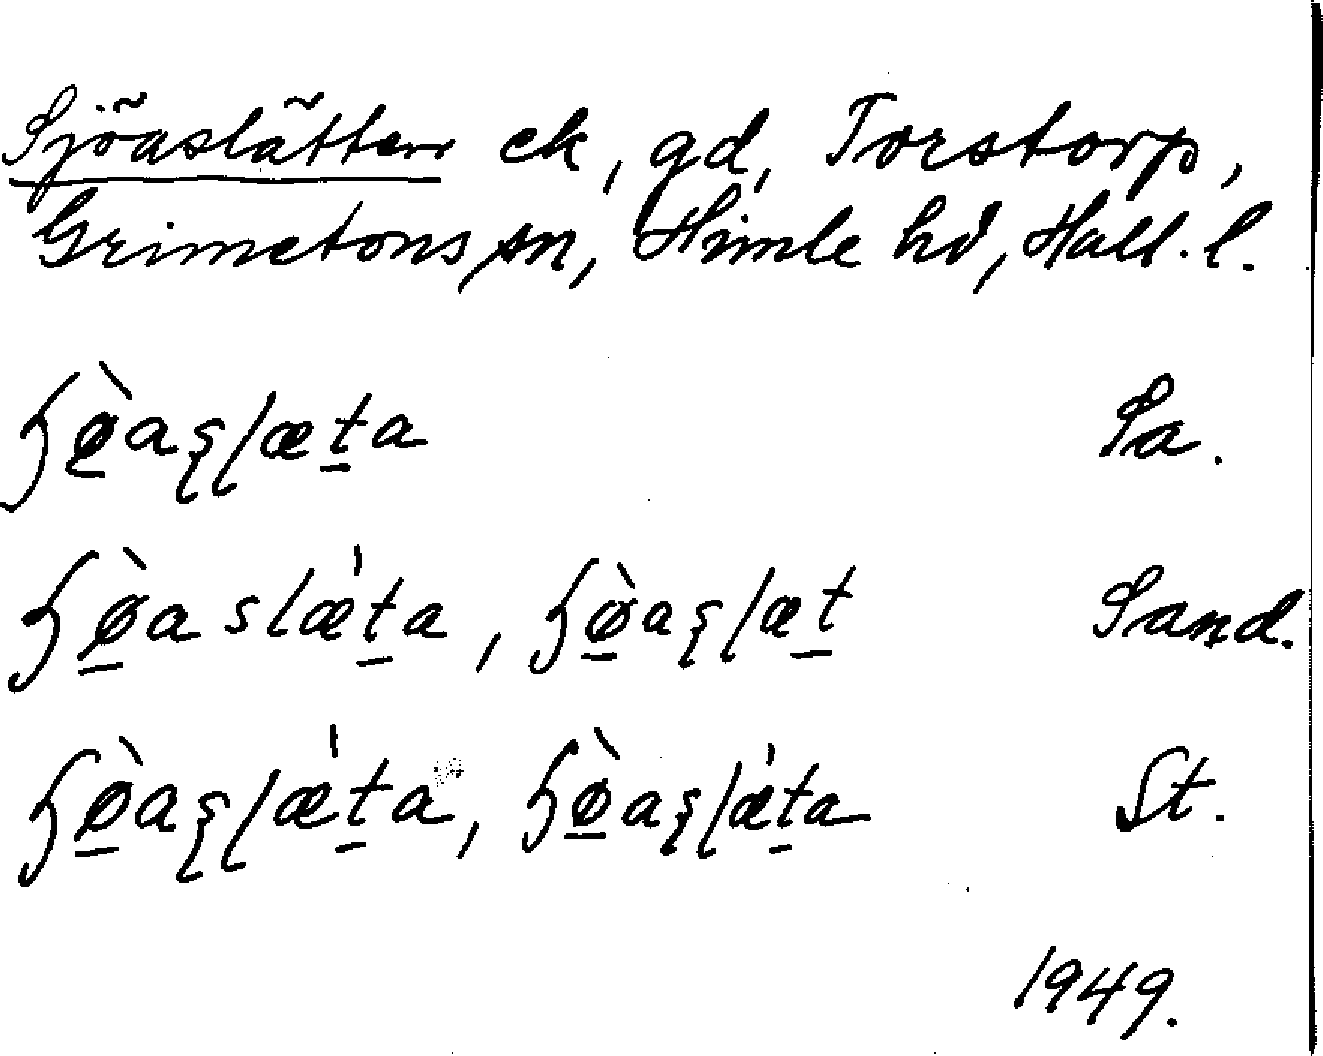 Sjöaslätten ek, gd, Torstorp,
Grimetons sn, Himle hd, Hall. l.
ɧø̱̀aʂɭæṯa Sa.
ɧø̱̀aslæ̍ṯa, ɧø̱̀aʂɭæṯ Sand.
ɧø̱̀aʂɭæ̍ṯa, ɧø̱̀aʂɭæ̍ṯa St.
1949.